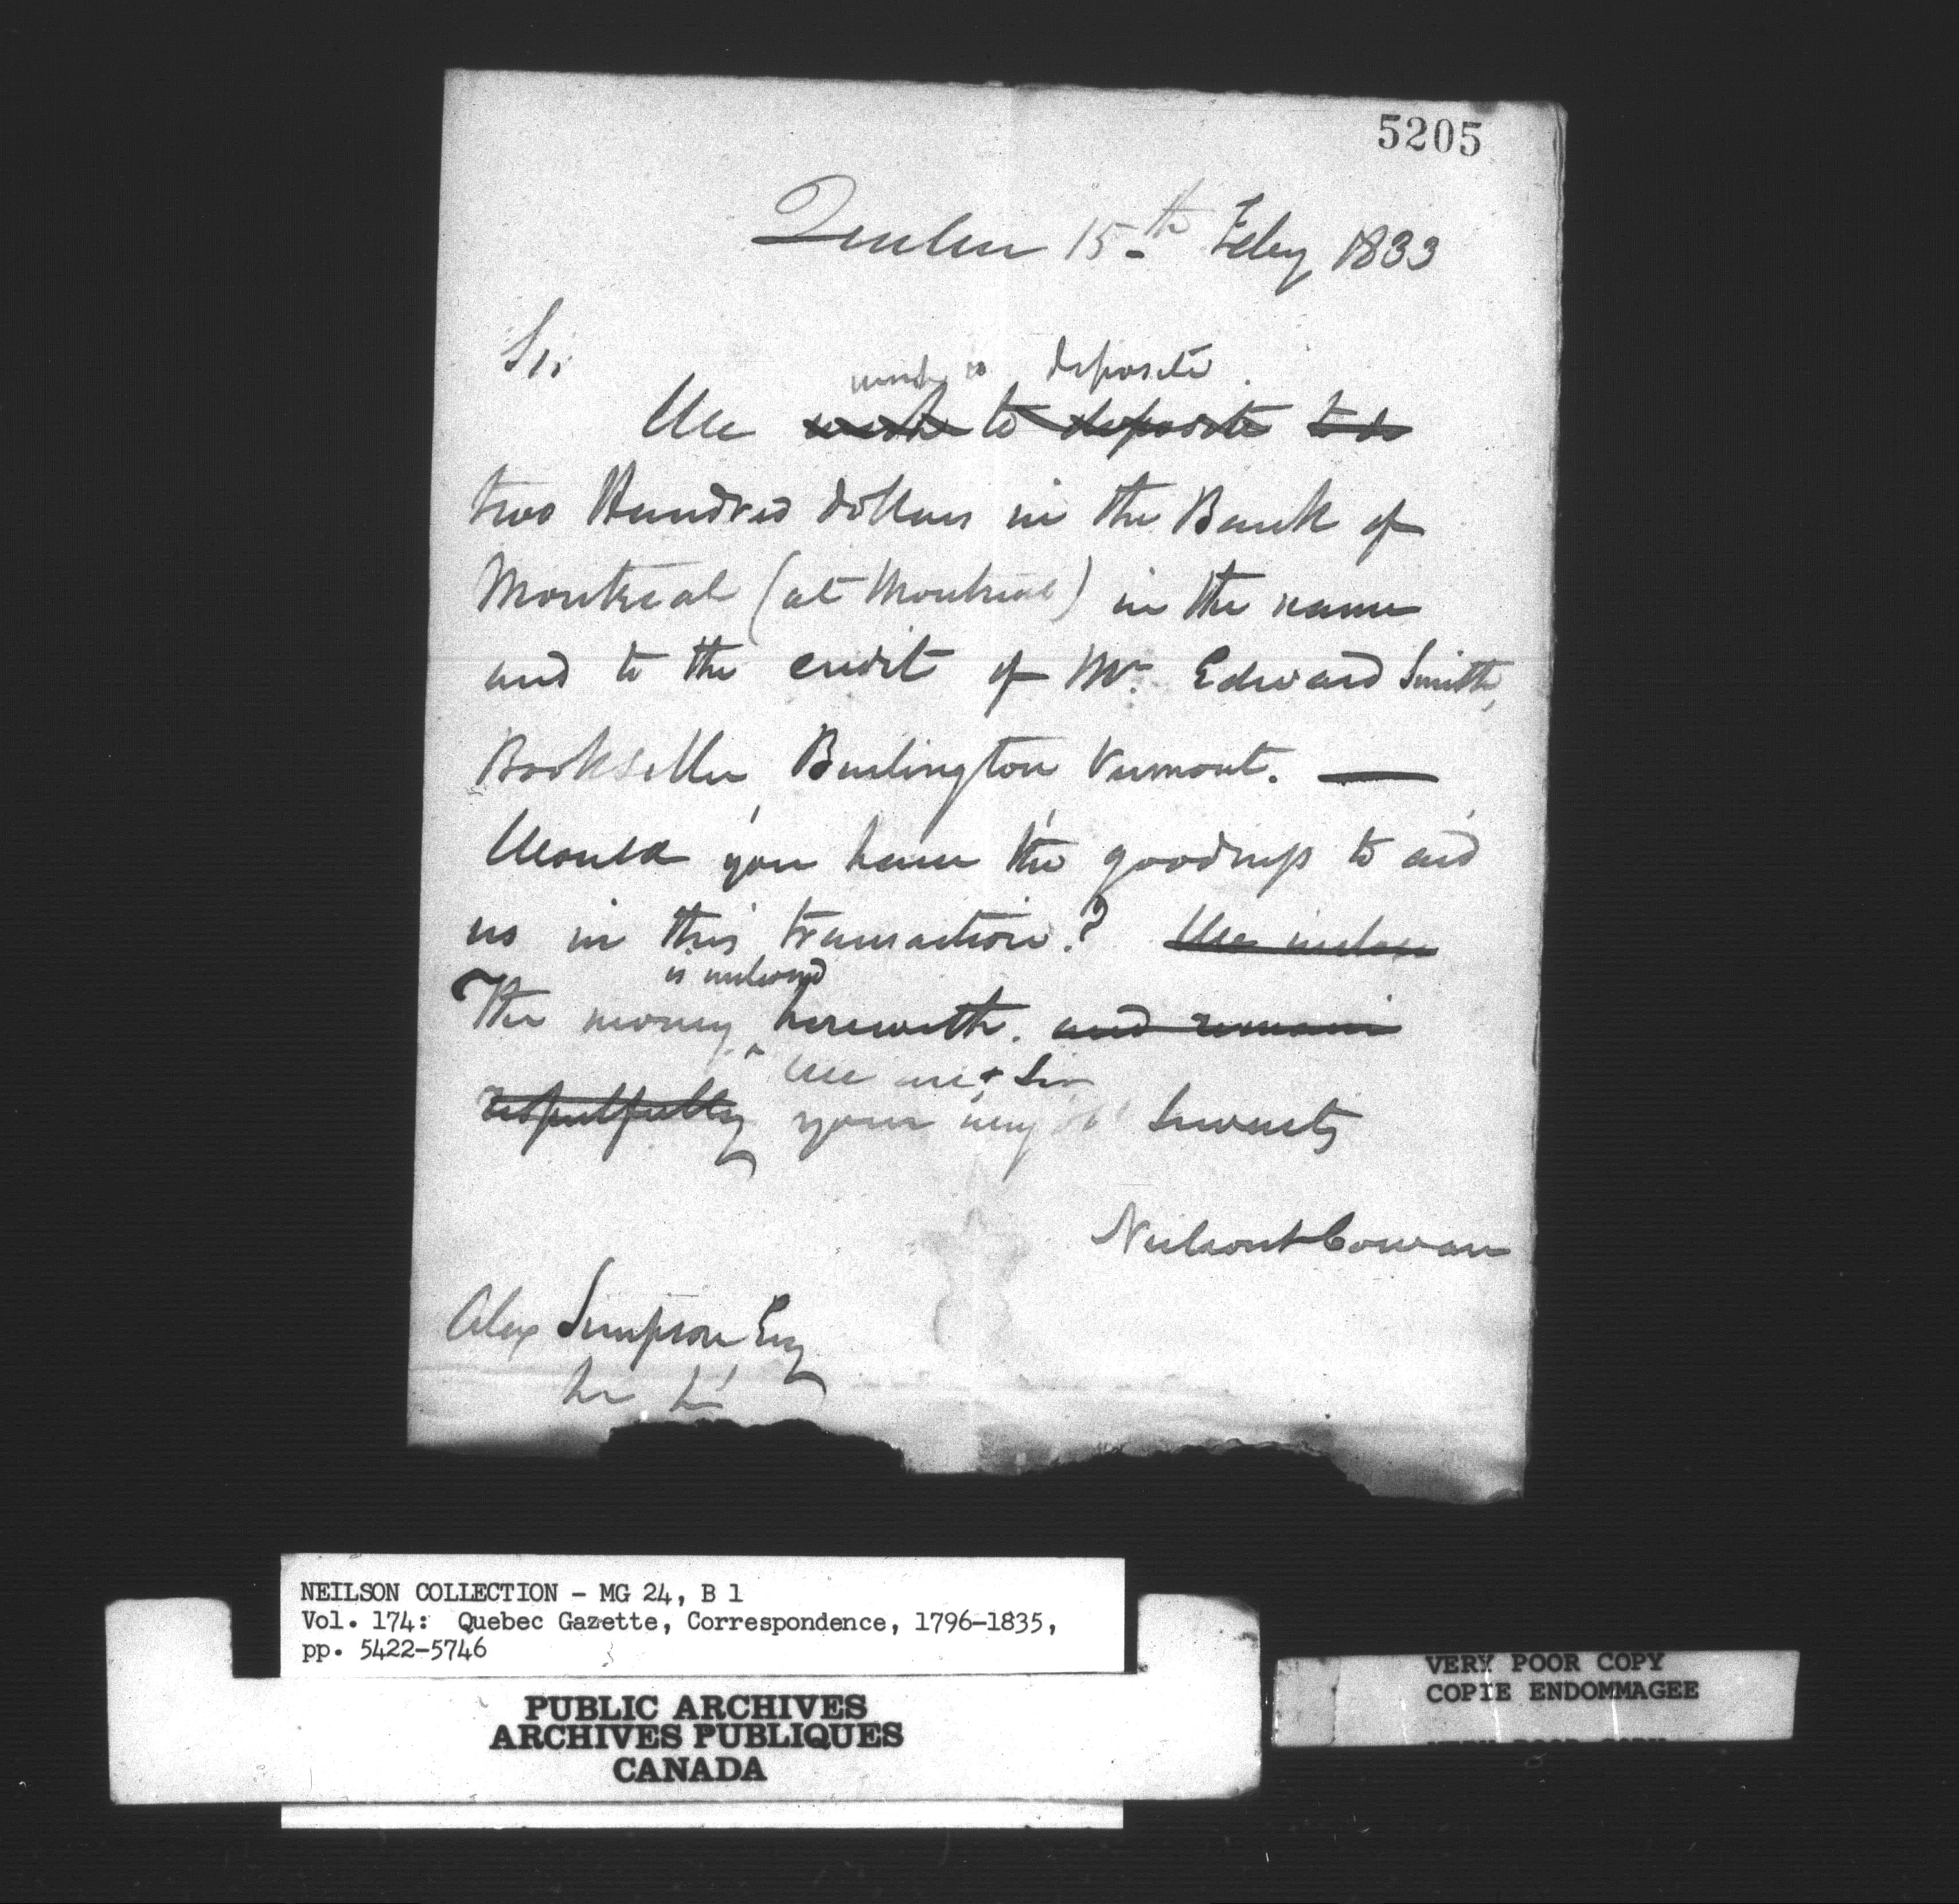 5205
Quebec 15th Feby 1833
Sir
wish to deposite
We wish to deposite to do
two Hundred dollars in the Bank of
Montreal (at Montreal) in the name
and to the credit of Mr. Edward Smith,
Bookseller, Burlington Vermont. —
Would you have the goodness to aid
us in this transaction? We inclose
is inclosed
The money herewith. and remain
We are Sir
respectfully your Servants
Neilson & Cowan
Alex Simpson Esq
NEILSON COLLECTION - MG 24, B 1
Vol. 174: Quebec Gazette, Correspondence, 1796-1835,
pp. 5422-5746
PUBLIC ARCHIVES
ARCHIVES PUBLIQUES
CANADA
VERY POOR COPY
COPIE ENDOMMAGEE
VERY POOR COPY